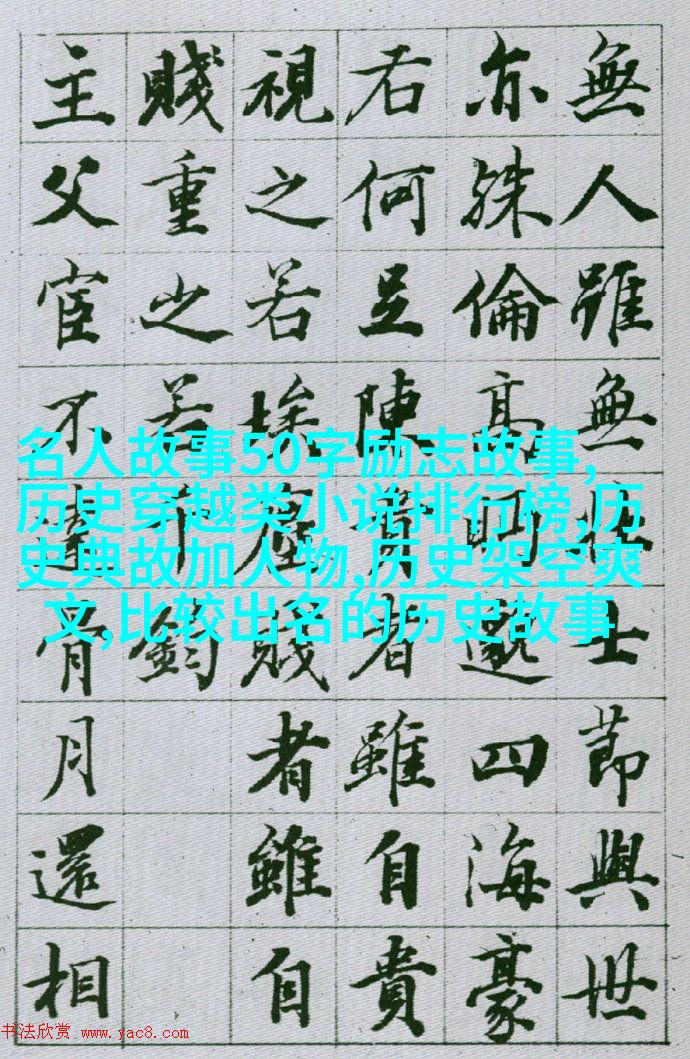 無人雖無壯士節與世
亦殊倫高眄邈四海豪
右何足陳貴者雖自貴
視之若埃塵賤者雖自
賤重之若千鈞
主父宦不達骨月還相
名人故事50字励志故事,
历史穿越类小说排行榜,历
史典故加人物,历史架空爽
文,比较出名的历史故事
书法欣赏 www.yac8.com